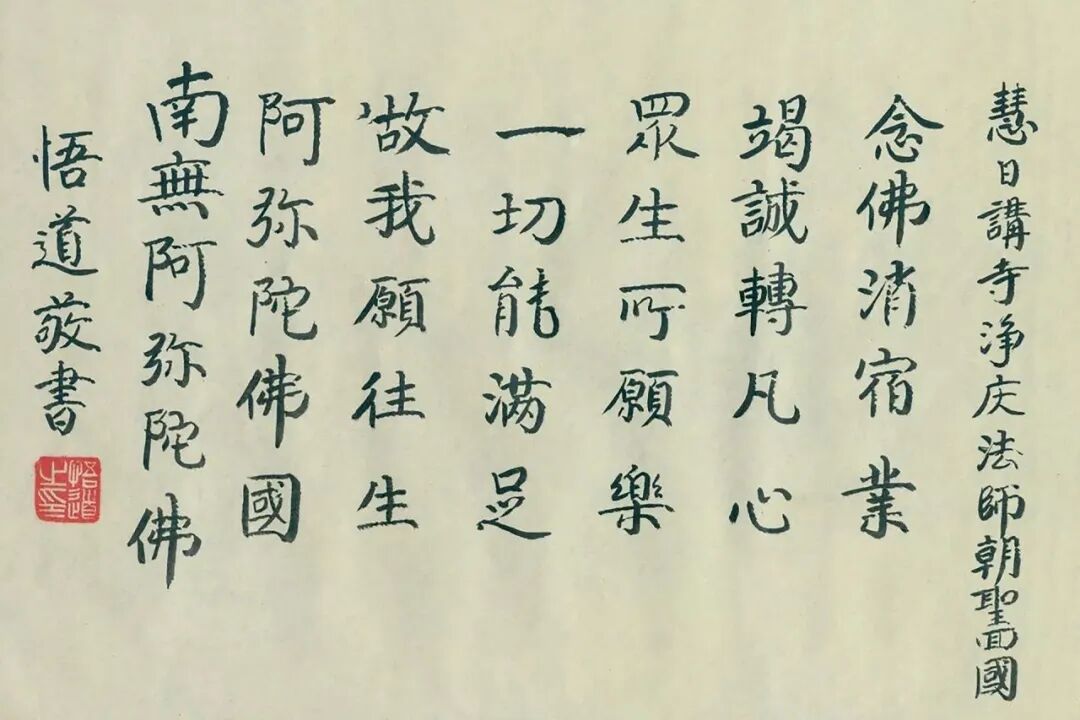 慧日講寺浄庆法師朝聖四國
念佛消宿業
竭誠轉凡心
眾生所願樂
一切能满足
故我願往生
阿弥陀佛國
南無阿弥陀佛
悟道敬書
悟道之印